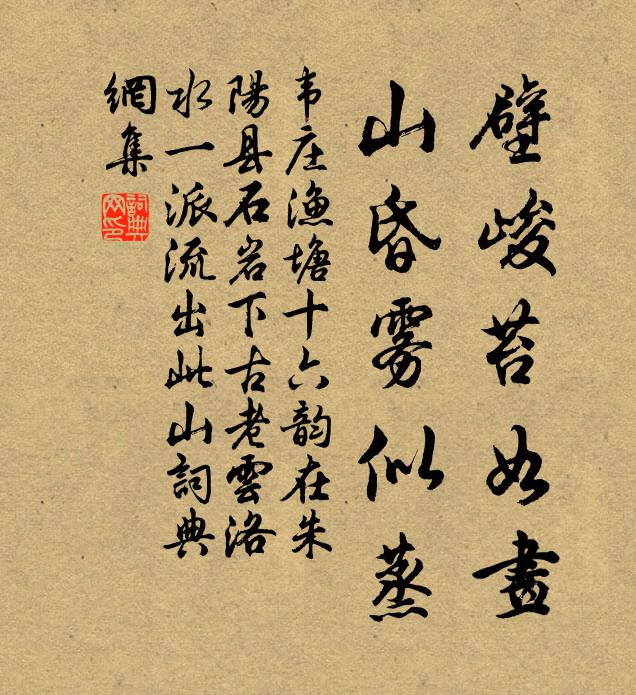 壁峻苔如畫
山昏雾似蒸
韦庄渔塘十六韵在朱
陽县石岩下古老雲洛
水一派流出此山詞典
網集
詞典
网印